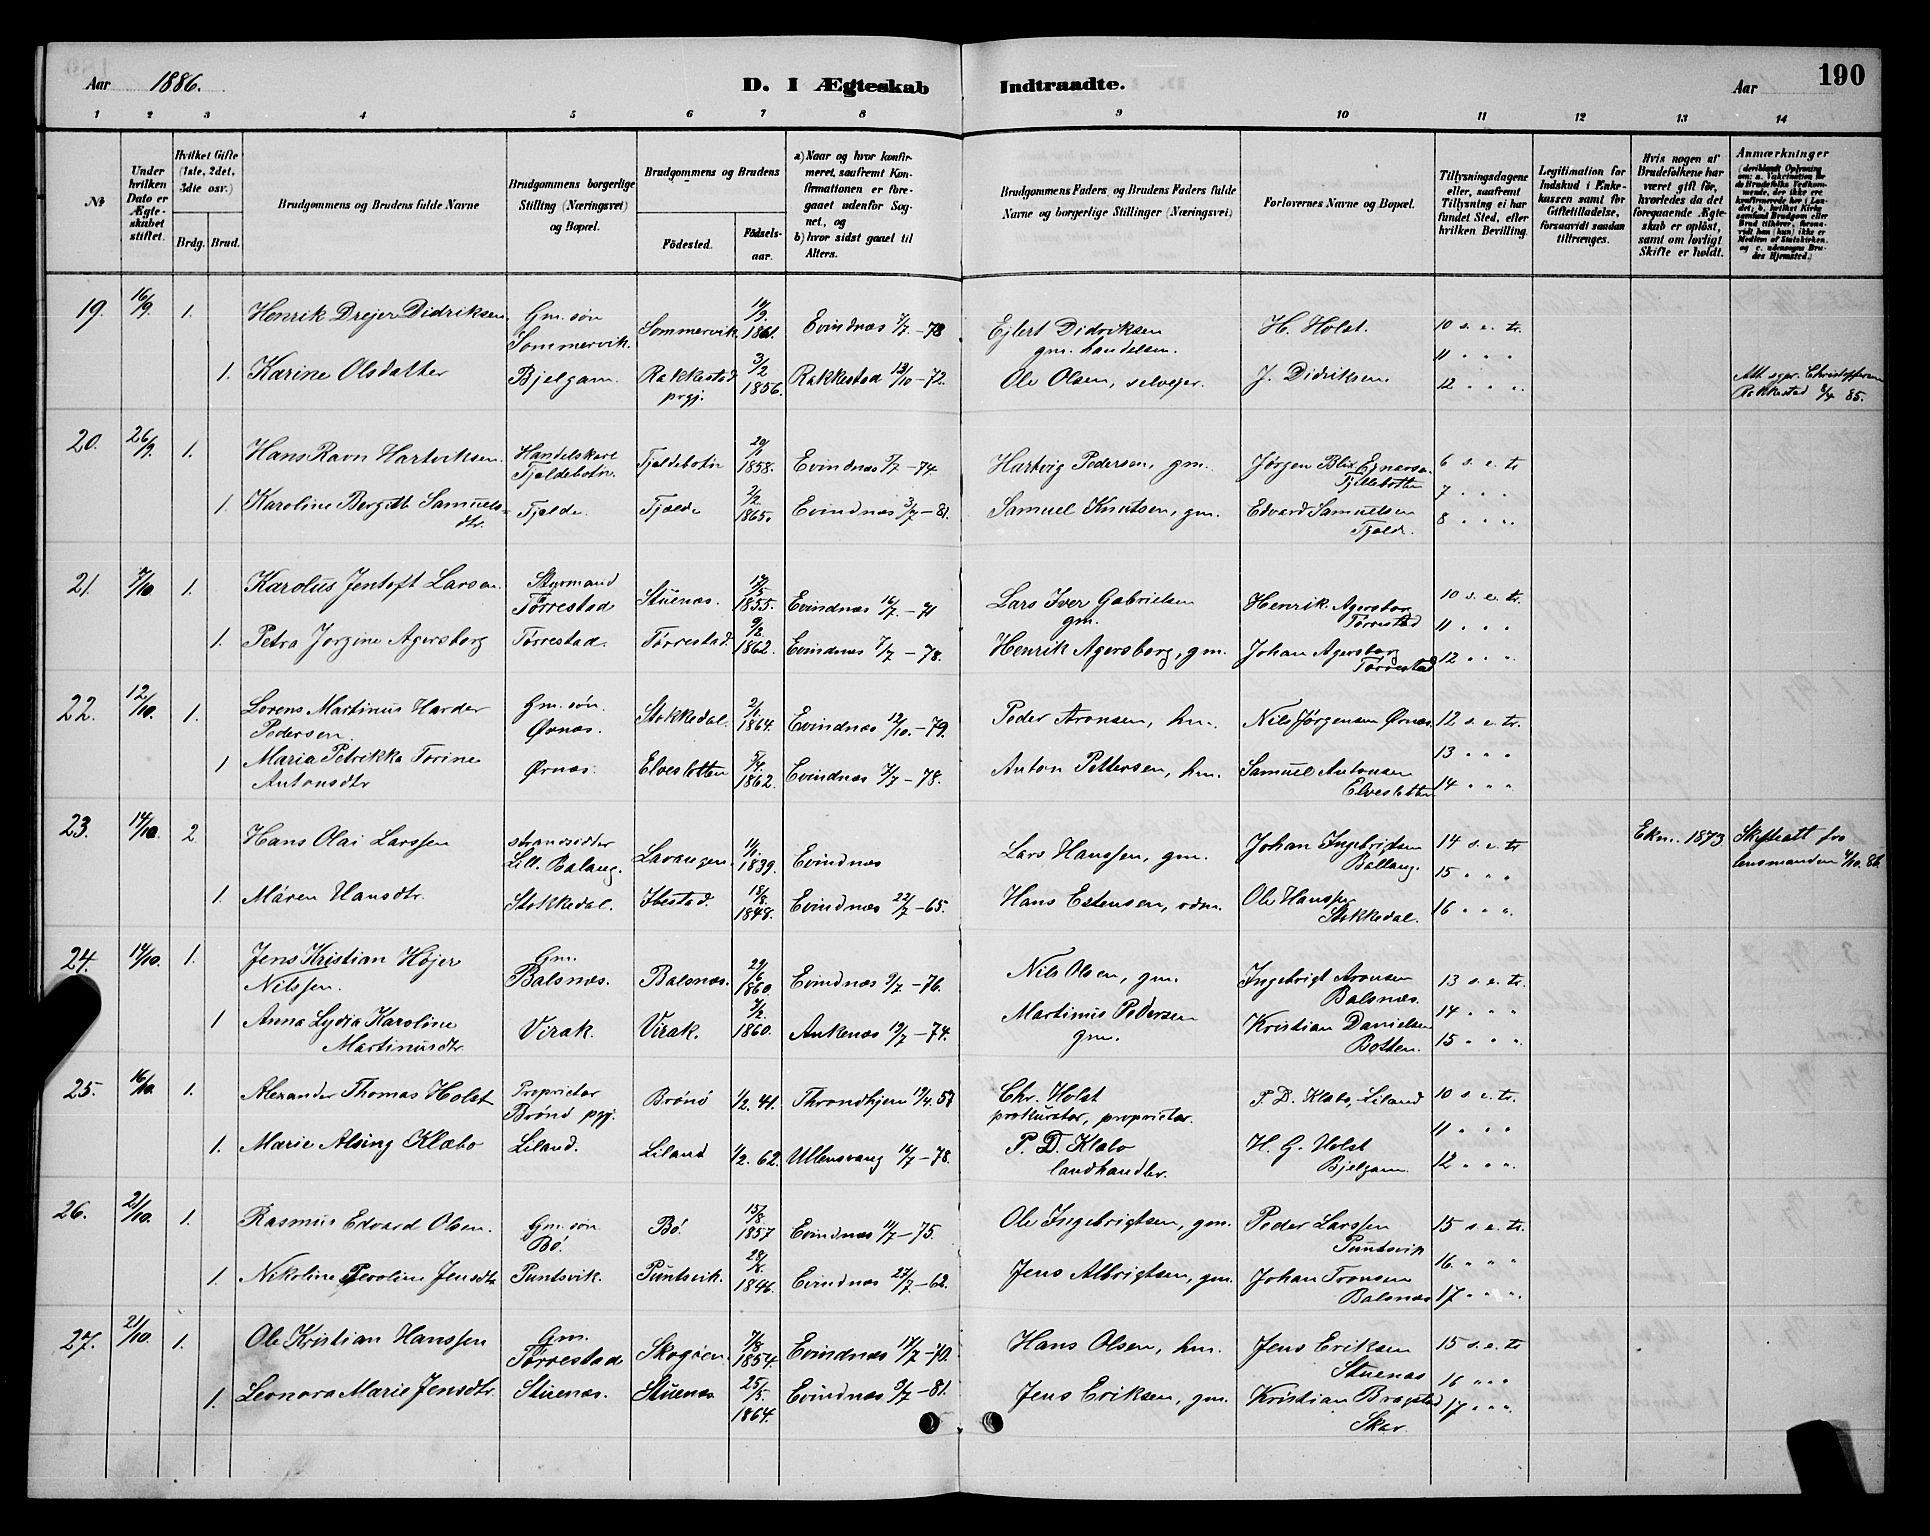 Aar 1886. D. I Ægteskab Indtraadte. Aar 190
1 2 3 4 5 6 7 8 9 10 11 12 13 14
No
Under hvilken Dato er Ægteskabet stiftet.
Hvilket Gifte (1ste, 2det, 3die osv.)
Brdg. Brud.
Brudgommens og Brudens fulde Navne
Brudgommens borgerlige Stilling (Næringsvei) og Bopæl.
Brudgommens og Brudens
Födested. Födsels-aar.
a) Naar og hvor konfirmeret, saafremt Konfirmationen er foregaaet udenfor Sognet, og
b) hvor sidst gaaet til Alters.
Brudgommens Faders og Brudens Faders fulde Navne og borgerlige Stillinger (Næringsvei)
Forlovernes Navne og Bopæl.
Tillysningsdagene eller, saafremt Tillysning ei har fundet Sted, efter hvilken Bevilling.
Legitimation for Indskud i Enkekassen samt for Giftetilladelse, forsaavidt saadan tiltrænges.
Hvis nogen af Brudefolkene har været gift för, hvorledes da det foregaaende Ægteskab er oplöst, samt om lovligt Skifte er holdt.
Anmærkninger
19. 16/9. 1. Henrik Drejer Didriksen Gm. søn Sommervik. Sommervik. 1861. Evindnæs 7/7 – 78 Ejlert Didriksen gm. handelsm. H. Holst. 10 s. e. tr.
11 " " "
1. Karine Olsdatter Bjelgam. Rakkestad prgj. 3/2 1856. Rakkestad 13/10 – 72. Ole Olsen, selvejer. J. Didriksen 12 " " " Att. sgpr. Christoffersen Rakkestad 85.
20. 26/9. 1. Hans Ravn Hartviksen. Handelskarl Tjeldebotn. Tjeldebotn 1858. Evindnæs 5/7 – 74. Hartvig Pedersen, gm. Jørgen Blix Ejnarsen Tjellebotten 6 s. e. tr
7 " " "
1. Karoline Bergitt Samuelsdtr. Tjelde. Tjelde 1865. Evindnæs 3/7 – 81. Samuel Knutsen, gm. Edvard Samuelsen Tjeld. 8 " " "
21. 7/10 1. Karolus Jentoft Larsen. Styrmand Tørrestad Stuenæs. 1855. Evindnæs 16/7 – 71 Lars Iver Gabrielsen gm. Henrik Agersborg Tørrestad 10 s. e. tr.
11 " " "
1. Petra Jørgine Agersborg Tørrestad. Tørrestad. 9/2 1862. Evindnæs 7/7 – 78. Henrik Agersborg, gm. Johan Agersborg Tørrestad 12 " " "
22. 12/10. 1. Lorens Martinus Harder Pedersen. Gm. søn. Ørnæs. Stokkedal. 1864. Evindnæs 12/10. – 79. Peder Aronsen, hm. Nils Jørgensen Ørnæs. 12 s. e. tr.
13 " " "
1 Maria Petrikka Torine Antonsdtr Ørnæs. Elveslotten 1862. Evindnæs 7/7 – 78. Anton Pettersen, hm. Samuel Antonsen Elveslotten 14 " " "
23. 14/10. 2 Hans Olai Larssen strandsidder Lill. Balang. Lavangen. 1839. Evindnæs Lars Hanssen, gm. Johan Ingebrigtsen Ballang. 14 s. e. tr. Ekm. 1873. Skifteatt fra lensmanden 86.
15 " " "
1. Máren Hansdtr. Stokkedal. Ibestad. 18/8. 1848. Evindnæs 22/7 – 65. Hans Estensen, Ole Hanssen Stokkedal. 16 " " "
24. 14/10. 1. Jens Kristian Højer Nilssen. Gm. Balsnæs. Balsnæs. 29/6 1860 Evindnæs 9/7 – 76. Nils Olsen, gm. Ingebrigt Aronsen Balsnæs. 13 s. e. tr.
14 " " "
1 Anna Lydia Karoline Martinusdtr. Virak. Virak. 1860. Ankenæs 19/7 – 74. Martinus Pedersen gm. Kristian Danielsen Botten. 15 " " "
25. 16/10. 1. Alexander Thomas Holst Proprietær Brønø pgj. Brønø 1/2. 41. Throndhjem 19/4. 57 Chr. Holst prokurator, proprietær. P. D. Klæbo, Liland 10 s. e. tr.
11 " " "
1. Marie Alsing Klæbo Liland. Liland 1/2. 62. Ullensvang 10/7 – 78. P. D. Klæbo landhandler. H. G. Holst Bjelgam. 12 " " "
26. 21/10. 1. Rasmus Edvard Olsen. Gm. søn Bø. Bø. 15/8. 1857 Evindnæs 11/7 – 75. Ole Ingebrigtsen, gm. Peder Larssen Puntsvik 15 s. e. tr.
16. " " "
1. Nikoline Peroline Jensdtr Puntsvik. Puntsvik. 1846. Evindnæs 27/7 – 62. Jens Albrigtsen, gm. Johan Tronsen Balsnæs 17 " " "
27. 21/10. 1. Ole Kristian Hanssen Gm. Tørrestad Skogøen. 7/8. 1854. Evindnæs 17/7 – 70. Hans Olsen, hm. Jens Eriksen Stuenæs 15 s. e. tr
16 " " "
1. Leonora Marie Jensdtr. Stuenæs. Stuenæs 25/5. 1864. Evindnæs 9/7 – 81. Jens Eriksen, gm. Kristian Bragstad Skar. 17 " " "